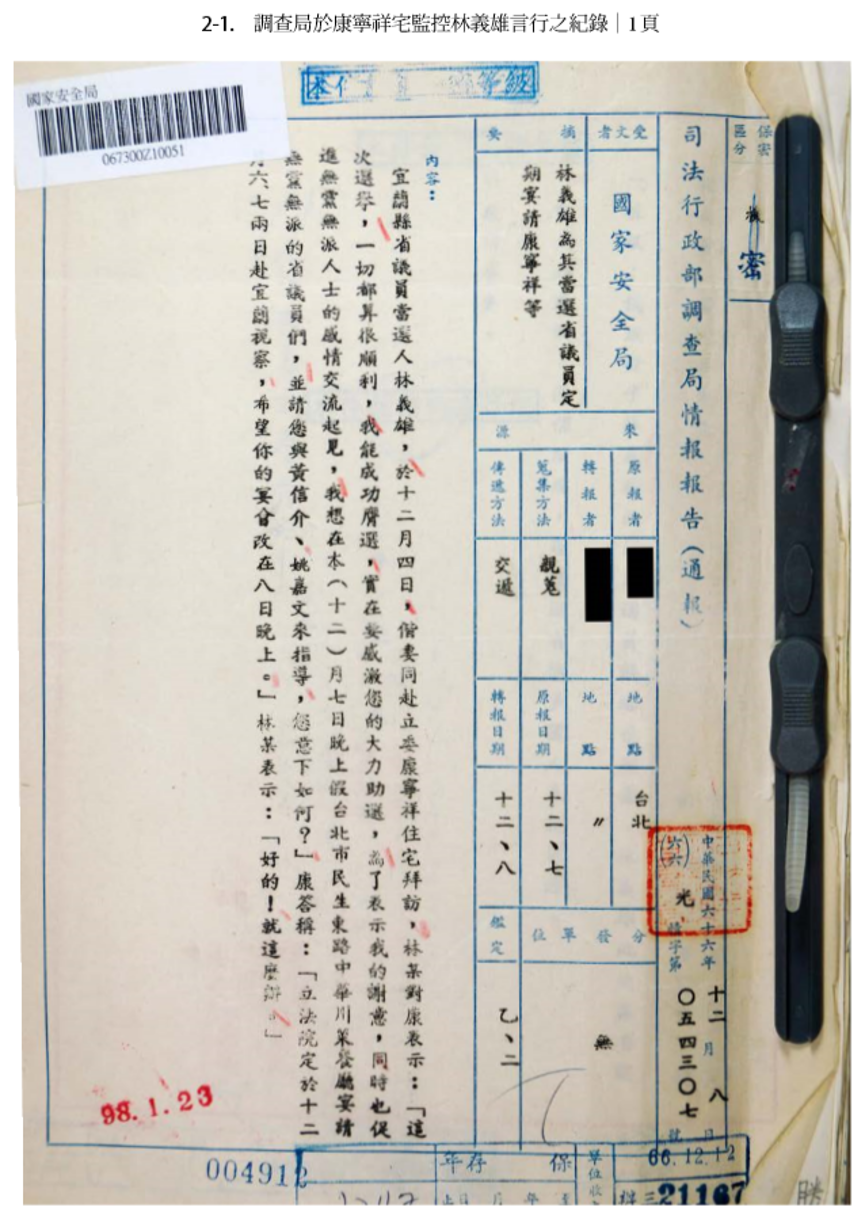 2-1. 調查局於康寧祥宅監控林義雄言行之紀錄｜1頁
國家安全局
067300Z10051
保密區分
機密
司法行政部調查局情報報告（通報）
中華民國六十六年十二月八日
（六六）
光
字第〇五四三〇七號
受文者
國家安全局
摘要
林義雄為其當選省議員定
期宴請康寧祥等
來源
原報者
轉報者
蒐集方法
親蒐
傳遞方法
交遞
地點
台北
地點
〃
原報日期
十二、七
轉報日期
十二、八
分發單位
無
鑑定
乙、二
內容：
宜蘭縣省議員當選人林義雄，於十二月四日，偕妻同赴立委康寧祥住宅拜訪，林某對康表示：「這
次選舉，一切都算很順利，我能成功膺選，實在要感激您的大力助選，為了表示我的謝意，同時也促
進無黨無派人士的感情交流起見，我想在本（十二）月七日晚上假台北市民生東路中華川菜餐廳宴請
無黨無派的省議員們，並請您與黃信介、姚嘉文來指導，您意下如何？」康答稱：「立法院定於十二
月六、七兩日赴宜蘭視察，希望你的宴會改在八日晚上。」林某表示：「好的！就這麼辦。」
98.1.23
004912
保存年
單位收
66.12.12
21167
勝